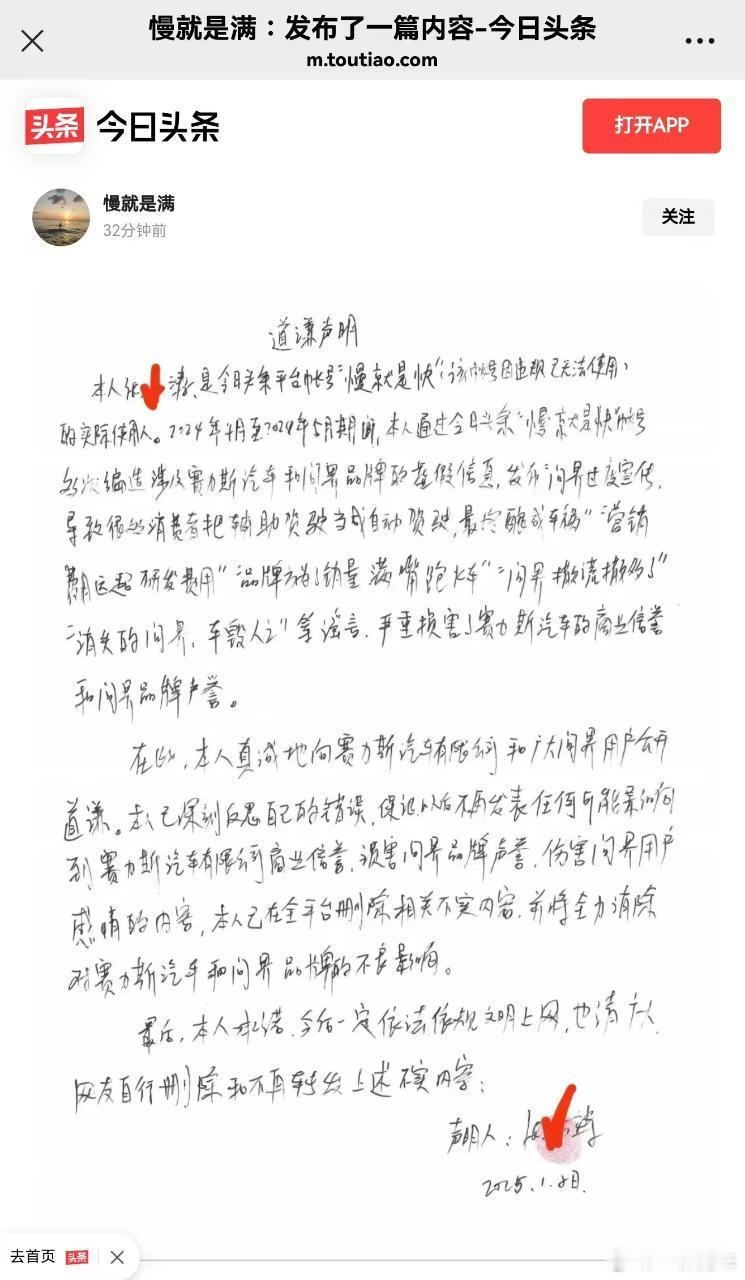 慢就是满：发布了一篇内容-今日头条
m.toutiao.com
头条 今日头条
打开APP
慢就是满
32分钟前
关注
道谦声明
本人 涛，是今日头条平台帐号“慢就是快”（该帐号因违规已无法使用）
的实际使用人。2024年4月至2024年5月期间，本人通过今日头条“慢就是快”帐号
多次编造涉及赛力斯汽车和问界品牌的虚假信息，发布“问界过度宣传，
导致很多消费者把辅助驾驶当成自动驾驶，最终酿成车祸”“营销
费用远超研发费用”“品牌方为了销量满嘴跑火车”“问界撒谎撒多了”
“消失的问界，车毁人亡”等谣言，严重损害了赛力斯汽车的商业信誉
和问界品牌声誉。
在此，本人真诚地向赛力斯汽车有限公司和广大问界用户公开
道谦。本人已深刻反思自己的错误，保证以后不再发表任何可能影响
到赛力斯汽车有限公司商业信誉、损害问界品牌声誉、伤害问界用户
感情的内容，本人已在全平台删除相关不实内容，并将全力消除
对赛力斯汽车和问界品牌的不良影响。
最后，本人承诺，今后一定依法依规文明上网，也请广大
网友自行删除和不再转发上述不实内容；
声明人：
2025.1.8日.
去首页 头条